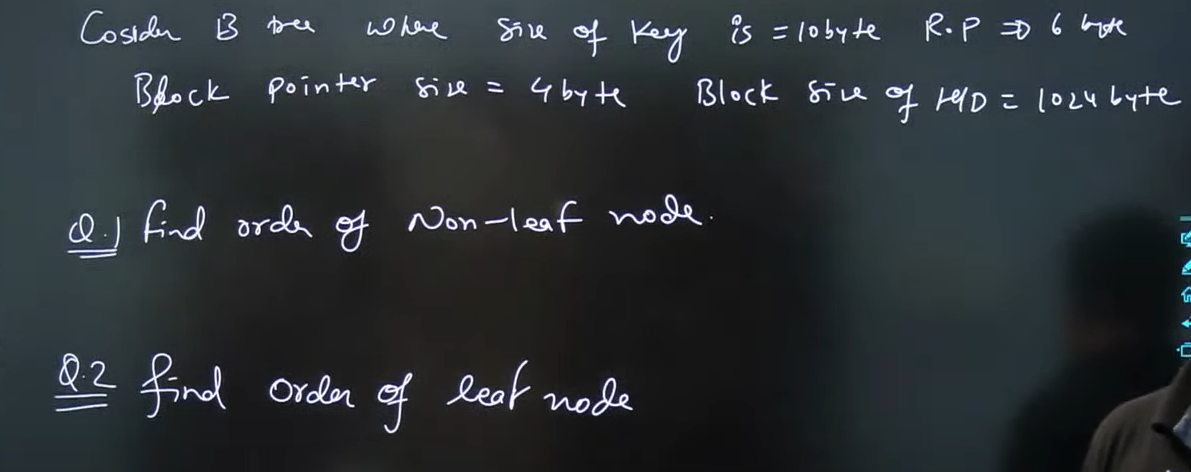 Cosider B tree where size of Key is = 10 byte R.P ⇒ 6 byte
Block pointer size = 4 byte Block size of HD = 1024 byte
Q.1 find order of Non-leaf node.
Q.2 find order of leaf node